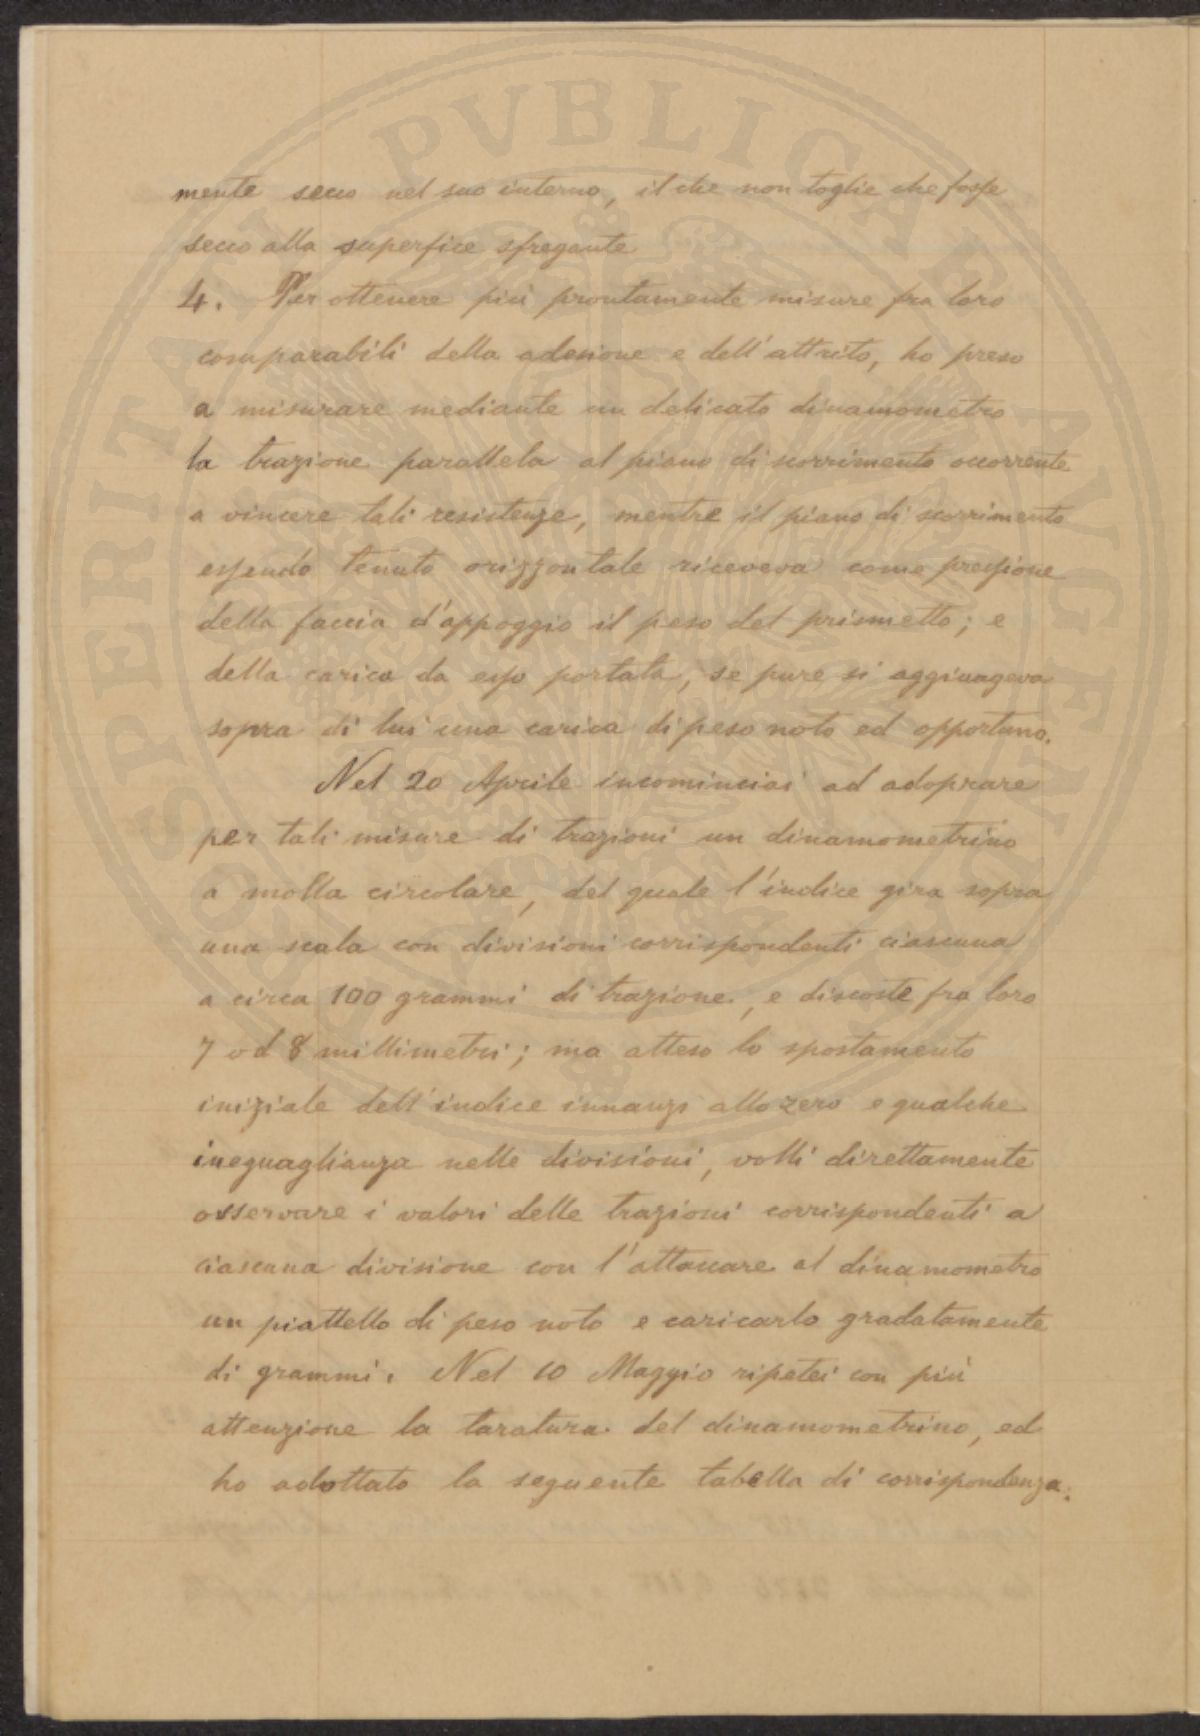 mente secco nel suo interno, il che non toglie che fosse
secco alla superfice sfregante
4. Per ottenere più prontamente misure fra loro
comparabili della adesione e dell'attrito, ho preso
a misurare mediante un delicato dinamometro
la trazione parallela al piano di scorrimento occorrente
a vincere tali resistenze, mentre il piano di scorrimento
essendo tenuto orizzontale riceveva come pressione
della faccia d'appoggio il peso del prismetto; e
della carica da esso portata, se pure si aggiungeva
sopra di lui una carica di peso noto ed opportuno.
Nel 20 Aprile incominciai ad adoprare
per tali misure di trazioni un dinamometrino
a molla circolare, del quale l'indice gira sopra
una scala con divisioni corrispondenti ciascuna
a circa 100 grammi di trazione, e discoste fra loro
7 od 8 millimetri; ma atteso lo spostamento
iniziale dell'indice innanzi allo zero e qualche
ineguaglianza nelle divisioni, volli direttamente
osservare i valori delle trazioni corrispondenti a
ciascuna divisione con l'attaccare al dinamometro
un piattello di peso noto e caricarlo gradatamente
di grammi. Nel 10 Maggio ripetei con più
attenzione la taratura del dinamometrino, ed
ho adottato la seguente tabella di corrispondenza:
PROSPERITATI PVBLICAE AVGENDAE